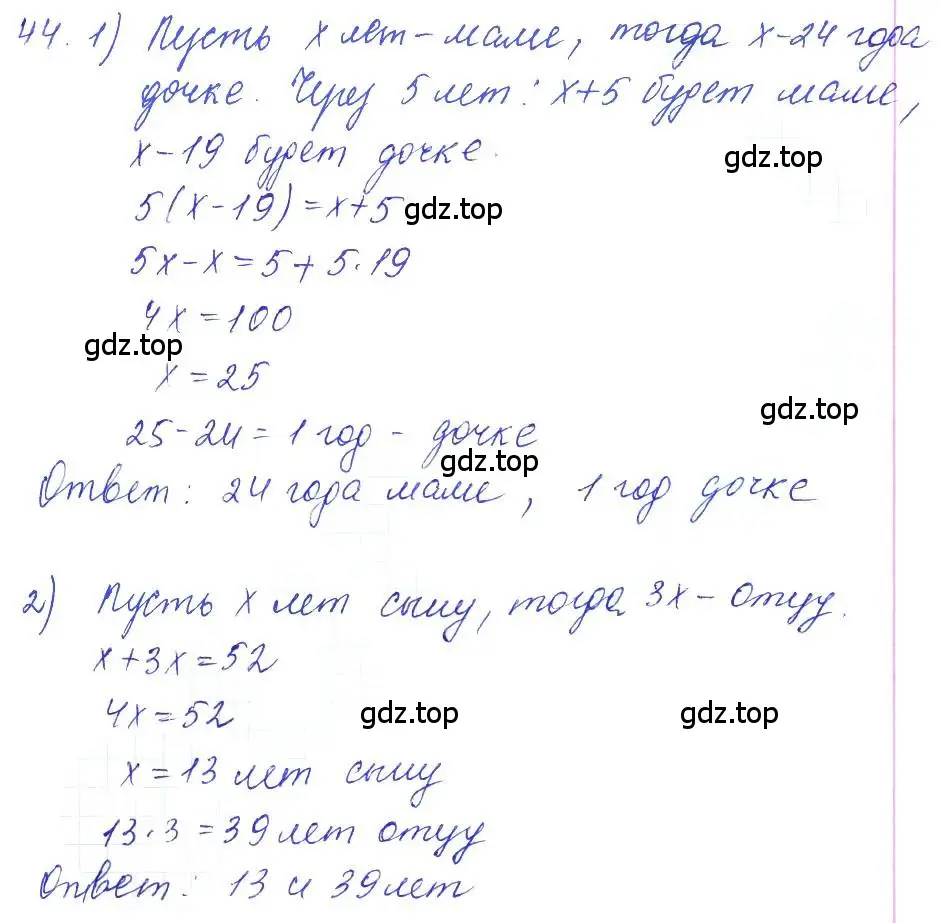 44. 1) Пусть x лет - маме, тогда x-24 года
дочке. Через 5 лет: x+5 будет маме,
x-19 будет дочке.
gdz.top
5(x-19)=x+5 gdz.top
5x-x=5+5·19
4x=100
gdz.top
x=25
gdz.top
25-24=1 год - дочке
gdz.top
Ответ: 24 года маме, 1 год дочке
2) Пусть x лет сыну, тогда 3x - отцу.
x+3x=52
4x=52 gdz.top gdz.top
x=13 лет сыну
13·3=39 лет отцу
Ответ: 13 и 39 лет